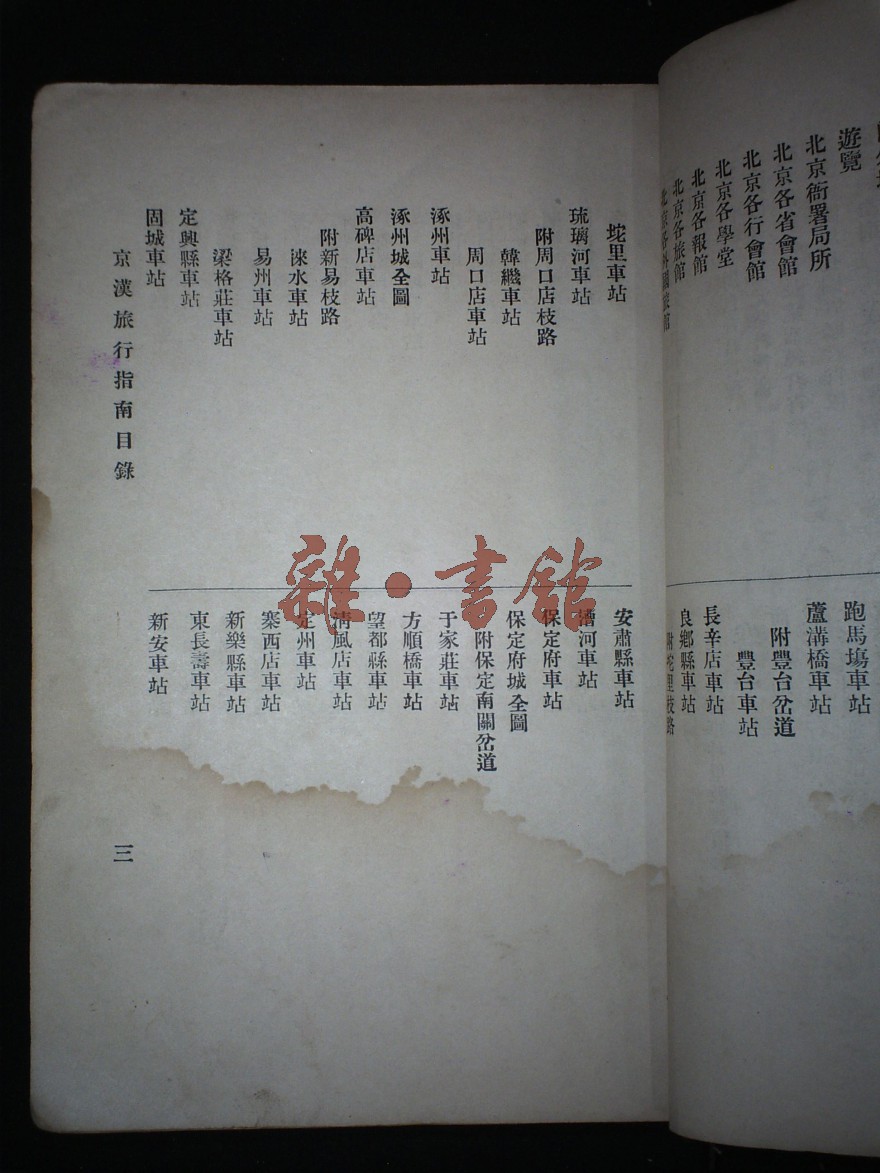 遊覽
北京衙署局所
北京各省會館
北京各行會館
北京各學堂
北京各報館
北京各旅館
北京各外國旅館
跑馬塲車站
蘆溝橋車站
附豐台岔道
豐台車站
長辛店車站
良鄉縣車站
附坨里枝路
坨里車站
琉璃河車站
附周口店枝路
韓繼車站
周口店車站
涿州車站
涿州城全圖
高碑店車站
附新易枝路
淶水車站
易州車站
梁格莊車站
定興縣車站
固城車站
安肅縣車站
漕河車站
保定府車站
保定府城全圖
附保定南關岔道
于家莊車站
方順橋車站
望都縣車站
淸風店車站
定州車站
寨西店車站
新樂縣車站
東長壽車站
新安車站
京漢旅行指南目錄
三
雜·書館